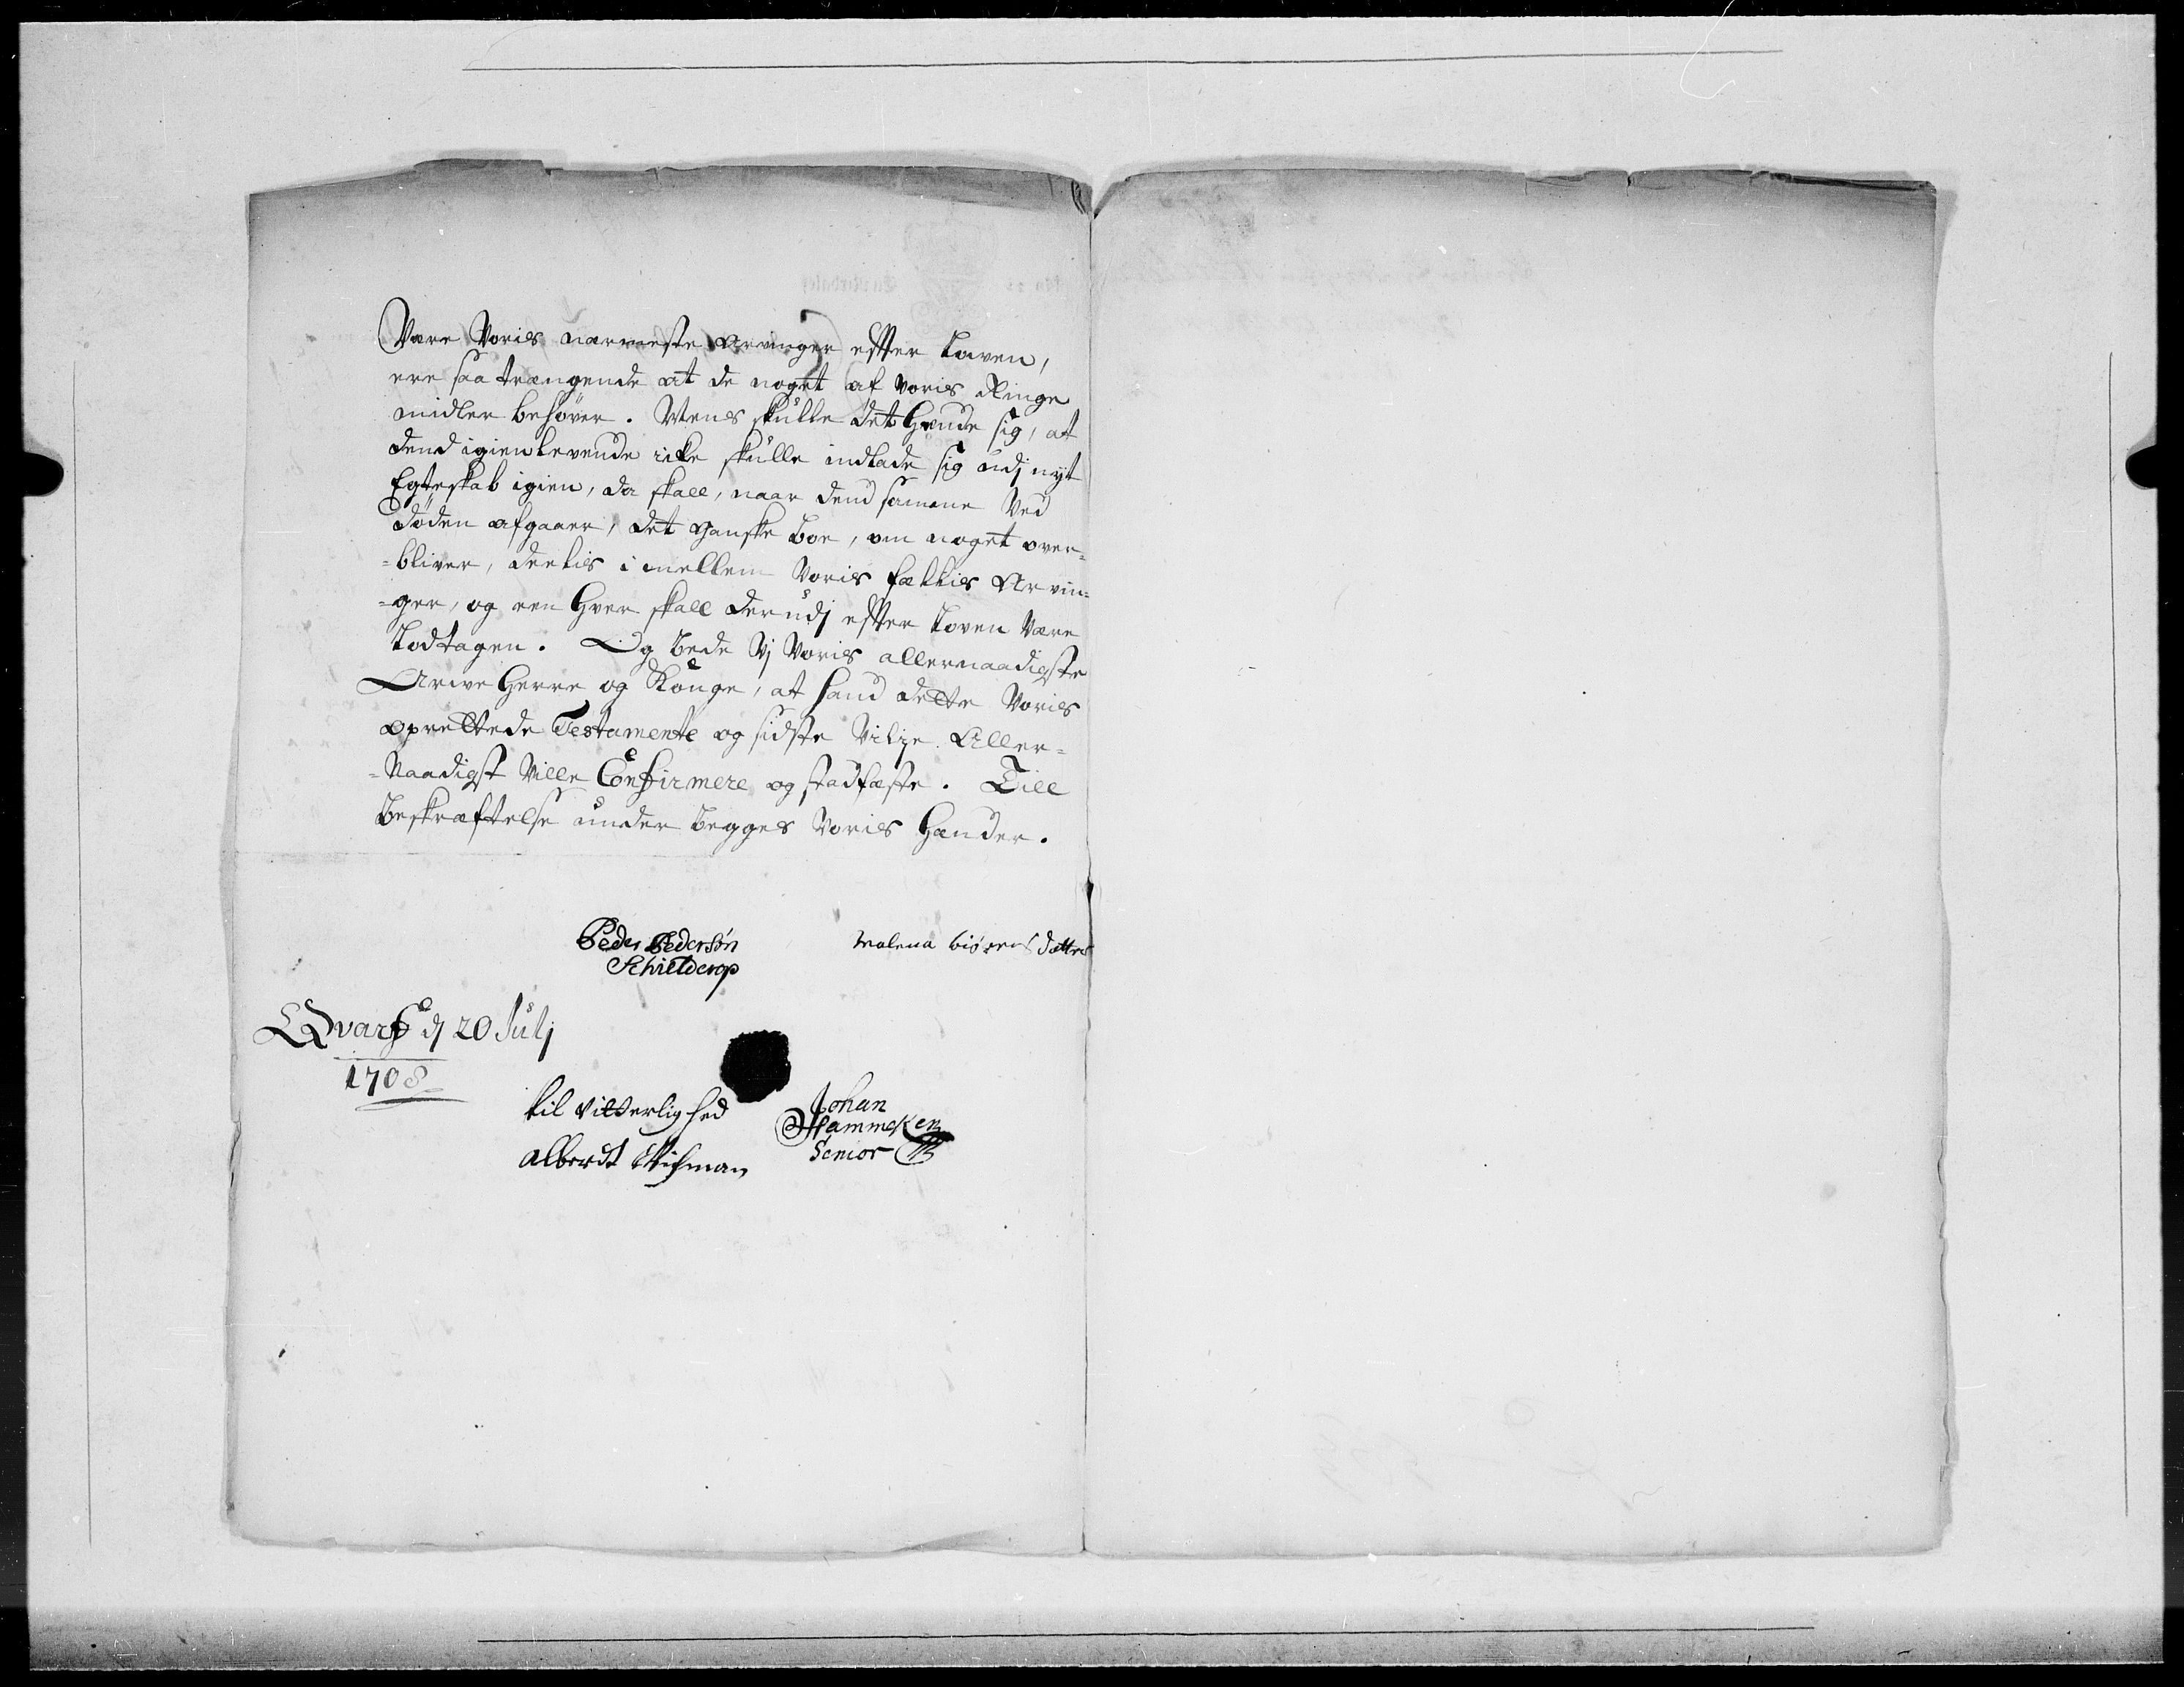 Være Voris nærmeste Arvinger effter Loven,
ere saa trængende at de noget af Voris Ringe
midler behøver. Mens skulle det Hende sig, at
dend igienlevende icke skulle indlade sig udj nyt
Egteskab igien, da skall, naar dend samme Ved
døden afgaaer, det gandske boe, om noget over-
-bliver, deelis i mellem Voris fællis Arvin-
-ger, og een Hver skall derudj effter Loven Være
Lodtagen. Og bede Vj Voris allernaadigste
Arve Herre og Konge, at hand dette Voris
oprettede Testamente og sidste Vilje Aller-
-Naadigst Ville Confirmere og stadfæste. Till
Beskræftelse under begges Voris Hænder.
Peder Pedersøn
Schielderop
Malena biørns datter
Qvars d 20 Julj
1708
til Vitterlighed
Johan
Hammeken
Senior
Alberdt